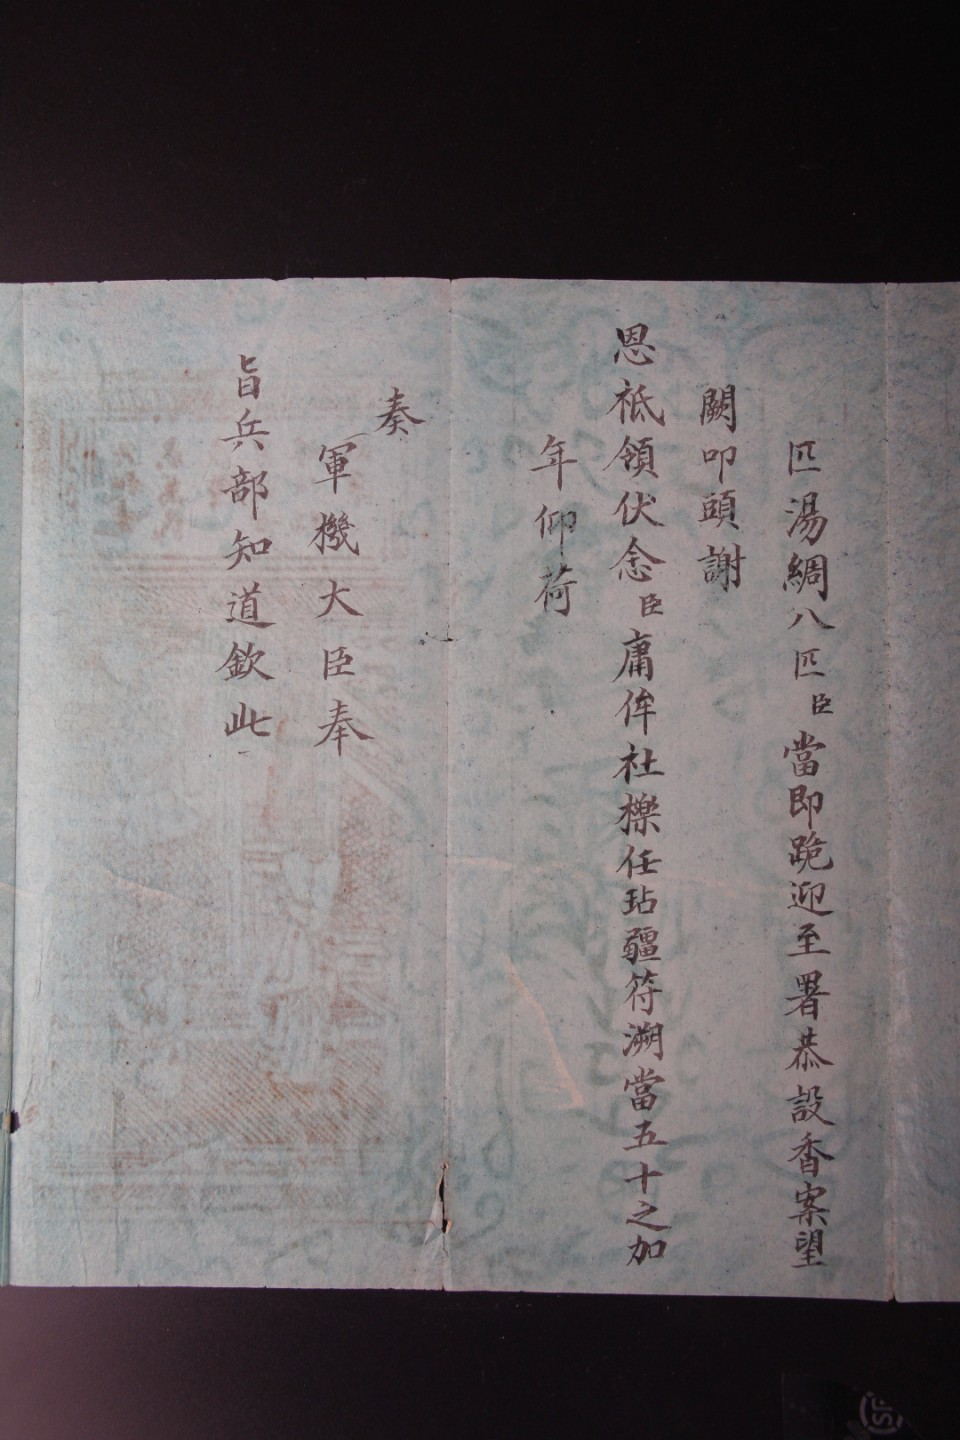 匹湯綢八匹臣當即跪迎至署恭設香案望
闕叩頭謝
恩祗領伏念臣庸侔社櫟任玷疆符溯當五十之加
年仰荷
奏
軍機大臣奉
旨兵部知道欽此